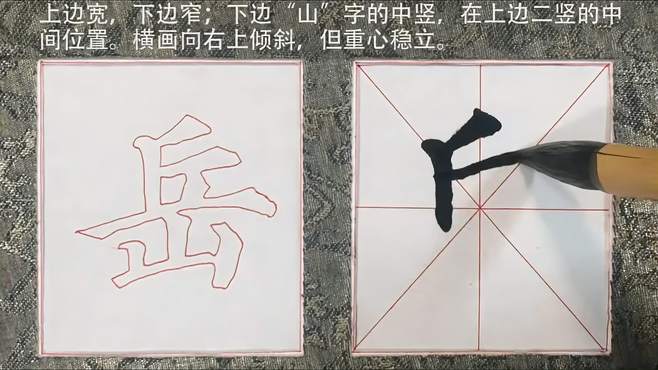 上边宽，下边窄；下边“山”字的中竖，在上边二竖的中
间位置。横画向右上倾斜，但重心稳立。
岳